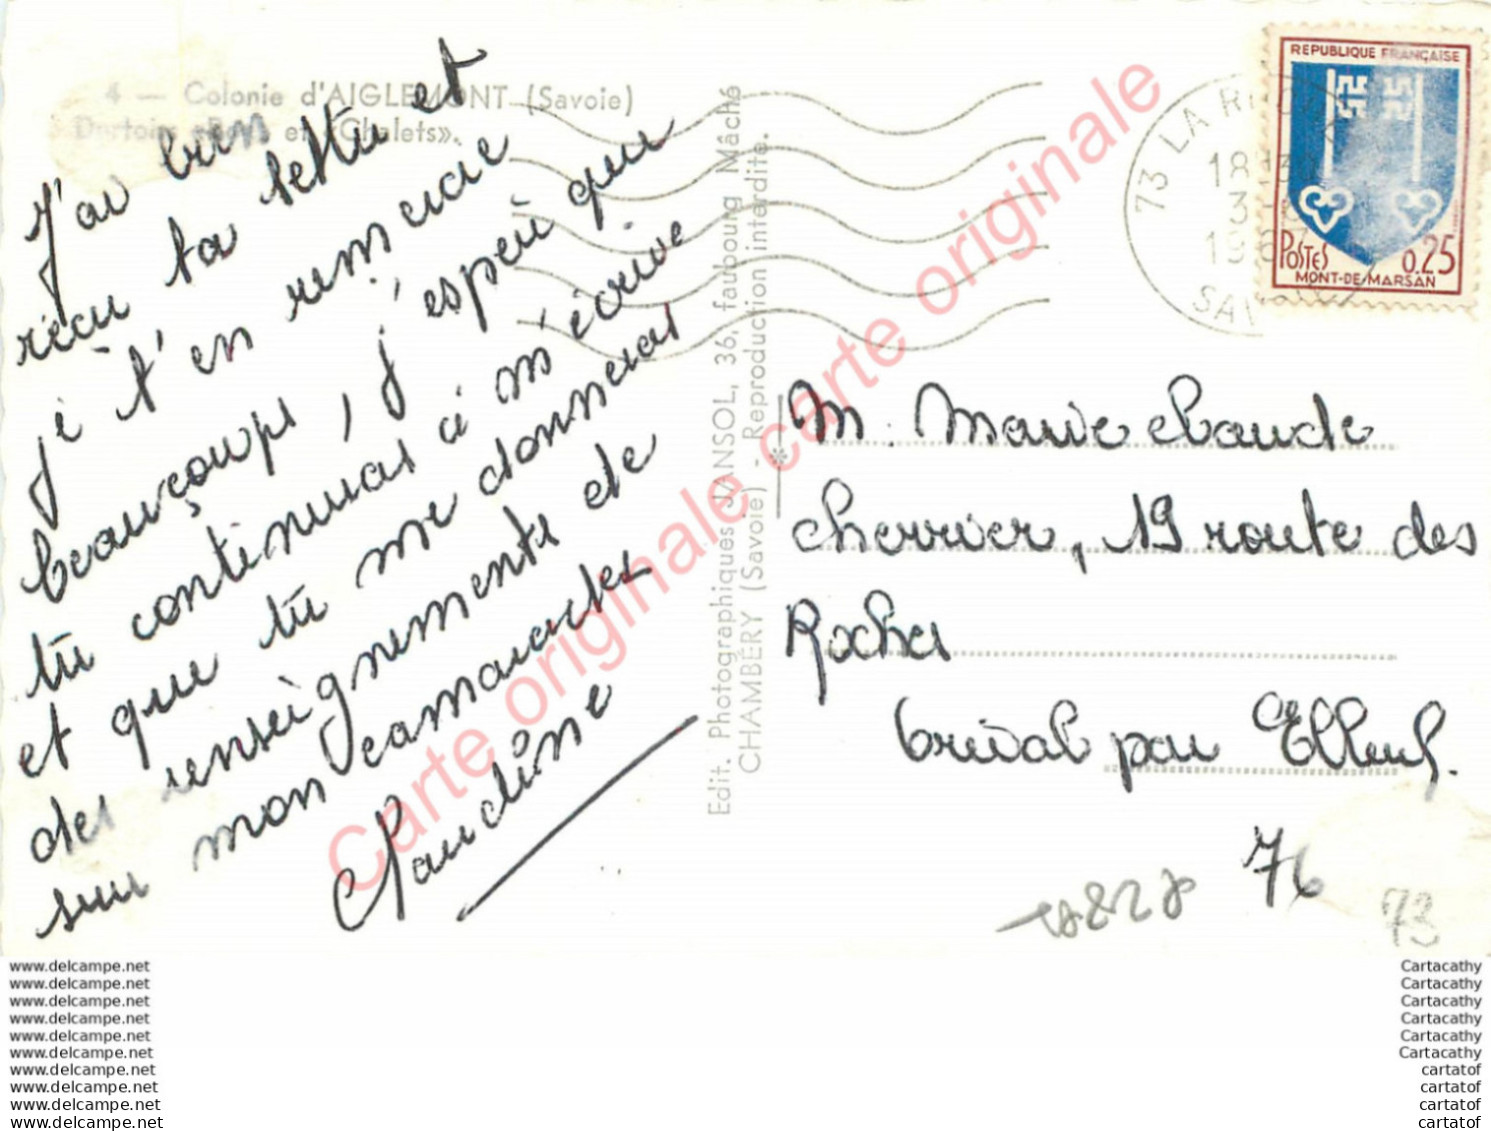 4 — Colonie d'AIGLEMONT (Savoie)
Dortoirs et «Chalets».
J'ai bien
reçu ta lettre et
je t'en remercie
beaucoup, j'espère que
tu continuras a m'écrire
et que tu me donneras
des renseignements de
sur mon camarades
Claudine
Edit. Photographiques JANSOL, 36, faubourg Mâché
CHAMBÉRY (Savoie) - Reproduction interdite.
Carte originale carte originale
73 LA R
18H30
3-
196
SAVOIE
REPUBLIQUE FRANÇAISE
POSTES 0,25
MONT-DE-MARSAN
M. Marie claude
cherrier, 19 route des
Roches
par Elbeuf.
76
73
www.delcampe.net
www.delcampe.net
www.delcampe.net
www.delcampe.net
www.delcampe.net
www.delcampe.net
www.delcampe.net
www.delcampe.net
www.delcampe.net
www.delcampe.net
Cartacathy
Cartacathy
Cartacathy
Cartacathy
Cartacathy
Cartacathy
cartatof
cartatof
cartatof
cartatof